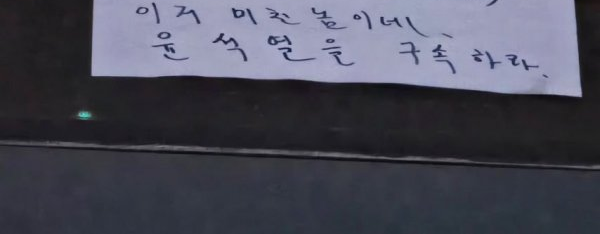 이저 미친놈이네.
윤석열을 구속하라.